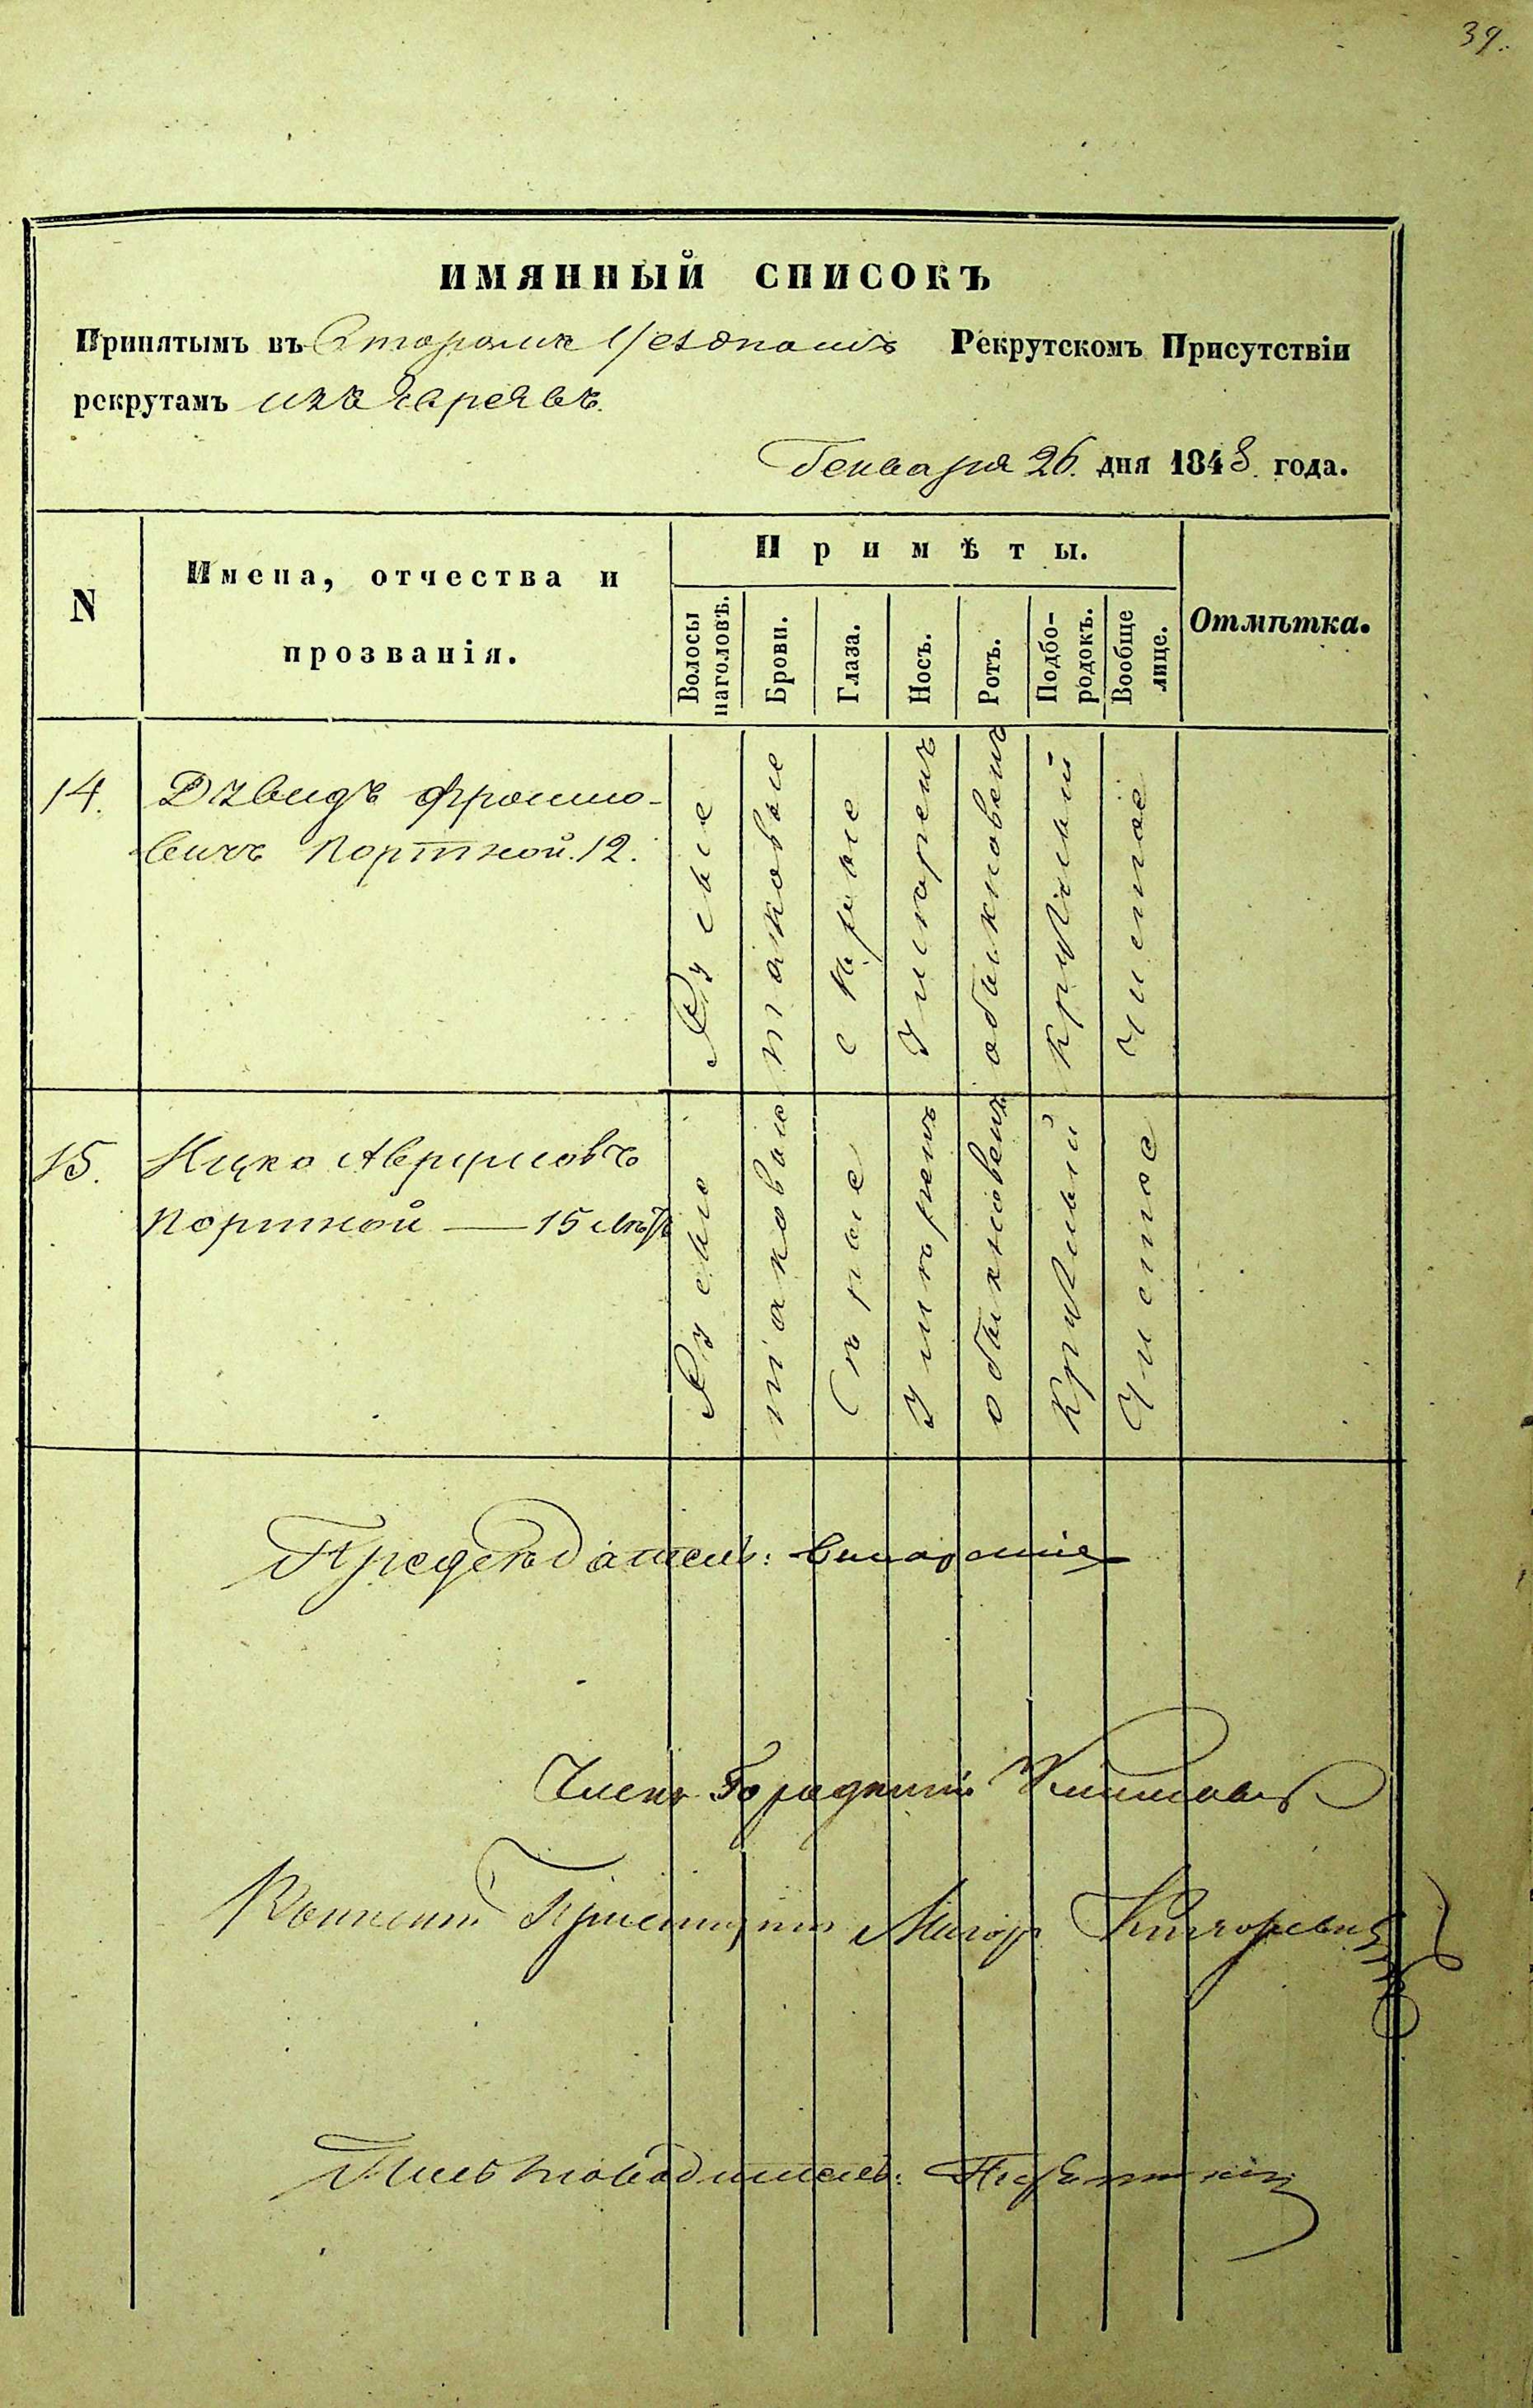 39.
ИМЯННЫЙ СПИСОКЪ
Принятымъ въ Второмъ Уездномъ Рекрутскомъ Присутствіи
рекрутамъ изъ Евреевъ.
Генваря 26. дня 1848. года.
N
Имена, отчества и
прозванія.
Примѣты.
Волосы
наголовѣ.
Брови.
Глаза.
Носъ.
Ротъ.
Подбо-
родокъ.
Вообще
лице.
Отмѣтка.
14.
Дувидъ Фроимо-
вичъ Портной. 12.
Русые
таковые
серые
умѣренъ
обыкновенъ
круглый
Чистое
15.
Ицко Аврумовъ
Портной — 15 лѣтъ
Русые
таковые
Серые
умѣренъ
обыкновенъ
круглый
Чистое
Предсѣдатель:
Членъ Городничій
Военный Пріемщикъ Маіоръ
Письмоводитель: